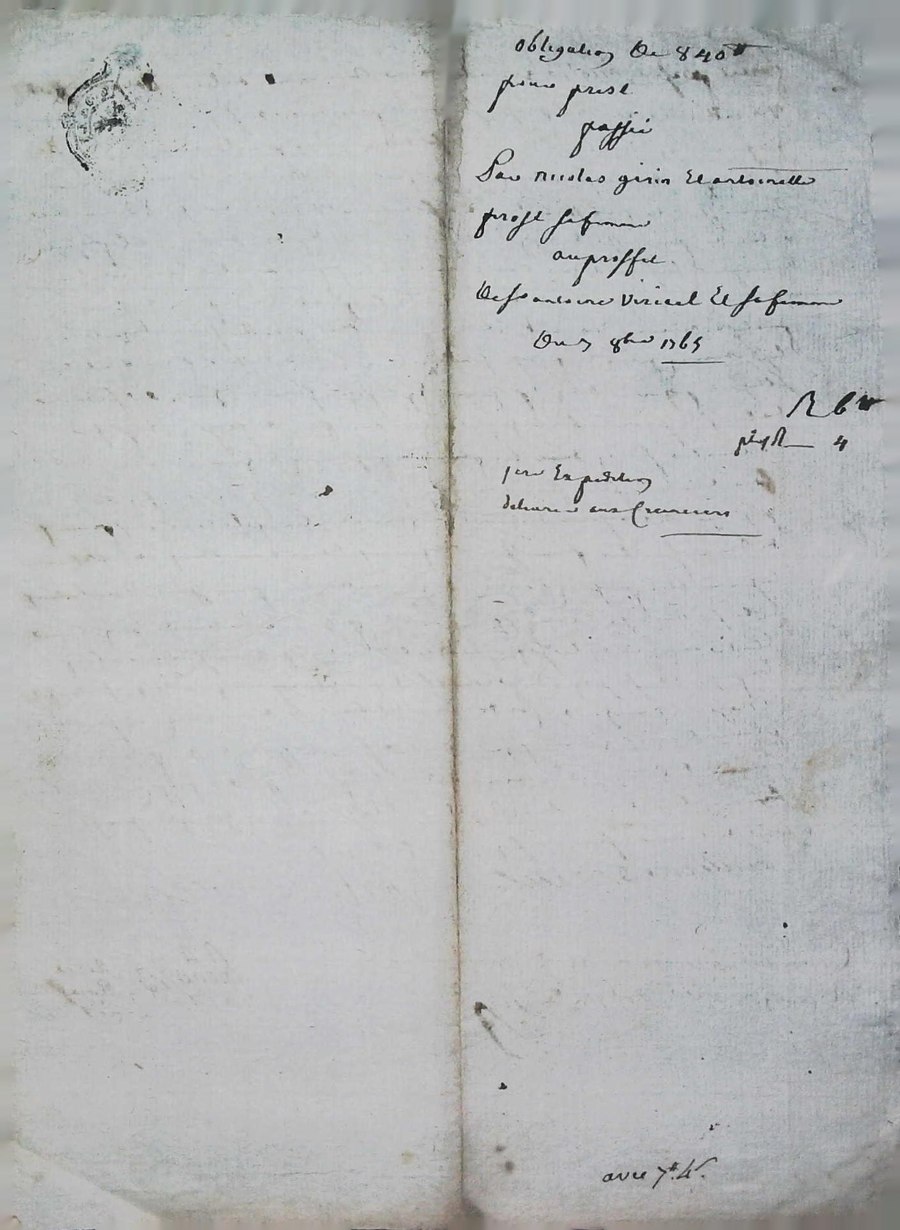 obligation De 840ᵗᵗ
pour prest
passée
Par nicolas girin Et antoinette
prost sa femme
au proffit
De sr antoine Viricel Et sa femme
Du 8bre 1765
6ᵗᵗ
4
1ere Expedition
delivree aux Creanciers
avec 7ᵗᵗ 4ˢ